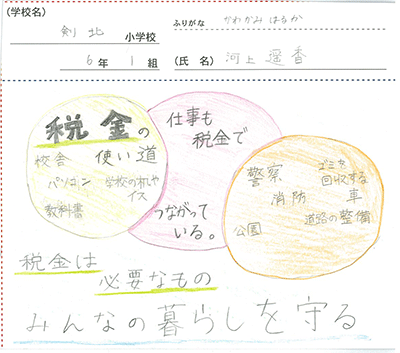 (学校名)
剣北 小学校
6年 1組
ふりがな かわかみ はるか
(氏名) 河上 遥香
税金の
使い道
校舎
パソコン
学校の机やイス
教科書
仕事も
税金で
つながって
いる。
警察
消防
ゴミを
回収する
車
公園
道路の整備
税金は
必要なもの
みんなの暮らしを守る